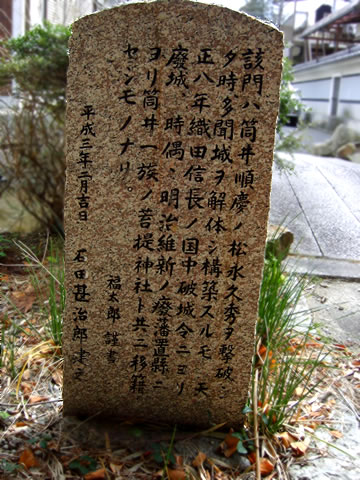 該門ハ筒井順慶ノ松永久秀ヲ撃破シ
タ時多聞城ヲ解体シ構築スルモ、天
正八年織田信長ノ国中破城令ニヨリ
廃城、時偶、明治維新ノ廃藩置縣ニ
ヨリ筒井一族ノ菩提神社ト共ニ移籍
セシモノナリ。
平成三年二月吉日
福太郎 謹書
石田甚治郎建之